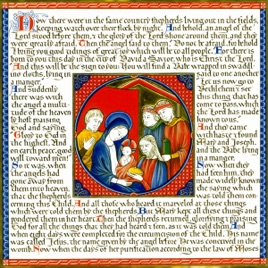 Now there were in the same country shepherds living out in the fields,
keeping watch over their flock by night. And behold, an angel of the
Lord stood before them, & the glory of the Lord shone around them, and they
were greatly afraid. Then the angel said to them, Do not be afraid, for behold
I bring you good tidings of great joy which will be to all people. For there is
born to you this day in the city of David a Savior, who is Christ the Lord.
And this will be the sign to you: You will find a Babe wrapped in swaddling
clothes, lying in
a manger.
And suddenly
there was with
the angel a multi-
tude of the heaven-
ly host praising
God and saying,
Glory to God in
the highest, And
on earth peace, good
will toward men!
So it was, when
the angels had
gone away from
them into heaven,
that the shepherds
said to one another
Let us now go to
Bethlehem & see
this thing that has
come to pass, which
the Lord has made
known to us.
And they came
with haste & found
Mary and Joseph,
and the Babe lying
in a manger.
Now when they
had seen him, they
made widely known
the saying which
was told them con-
cerning this Child. And all those who heard it marveled at those things
which were told them by the shepherds. But Mary kept all these things and
pondered them in her heart. Then the shepherds returned, glorifying & praising
God for all the things that they had heard & seen, as it was told them. And
when eight days were completed for the circumcision of the Child, His name
was called Jesus, the name given by the angel before He was conceived in the
womb. Now when the days of her purification according to the law of Moses